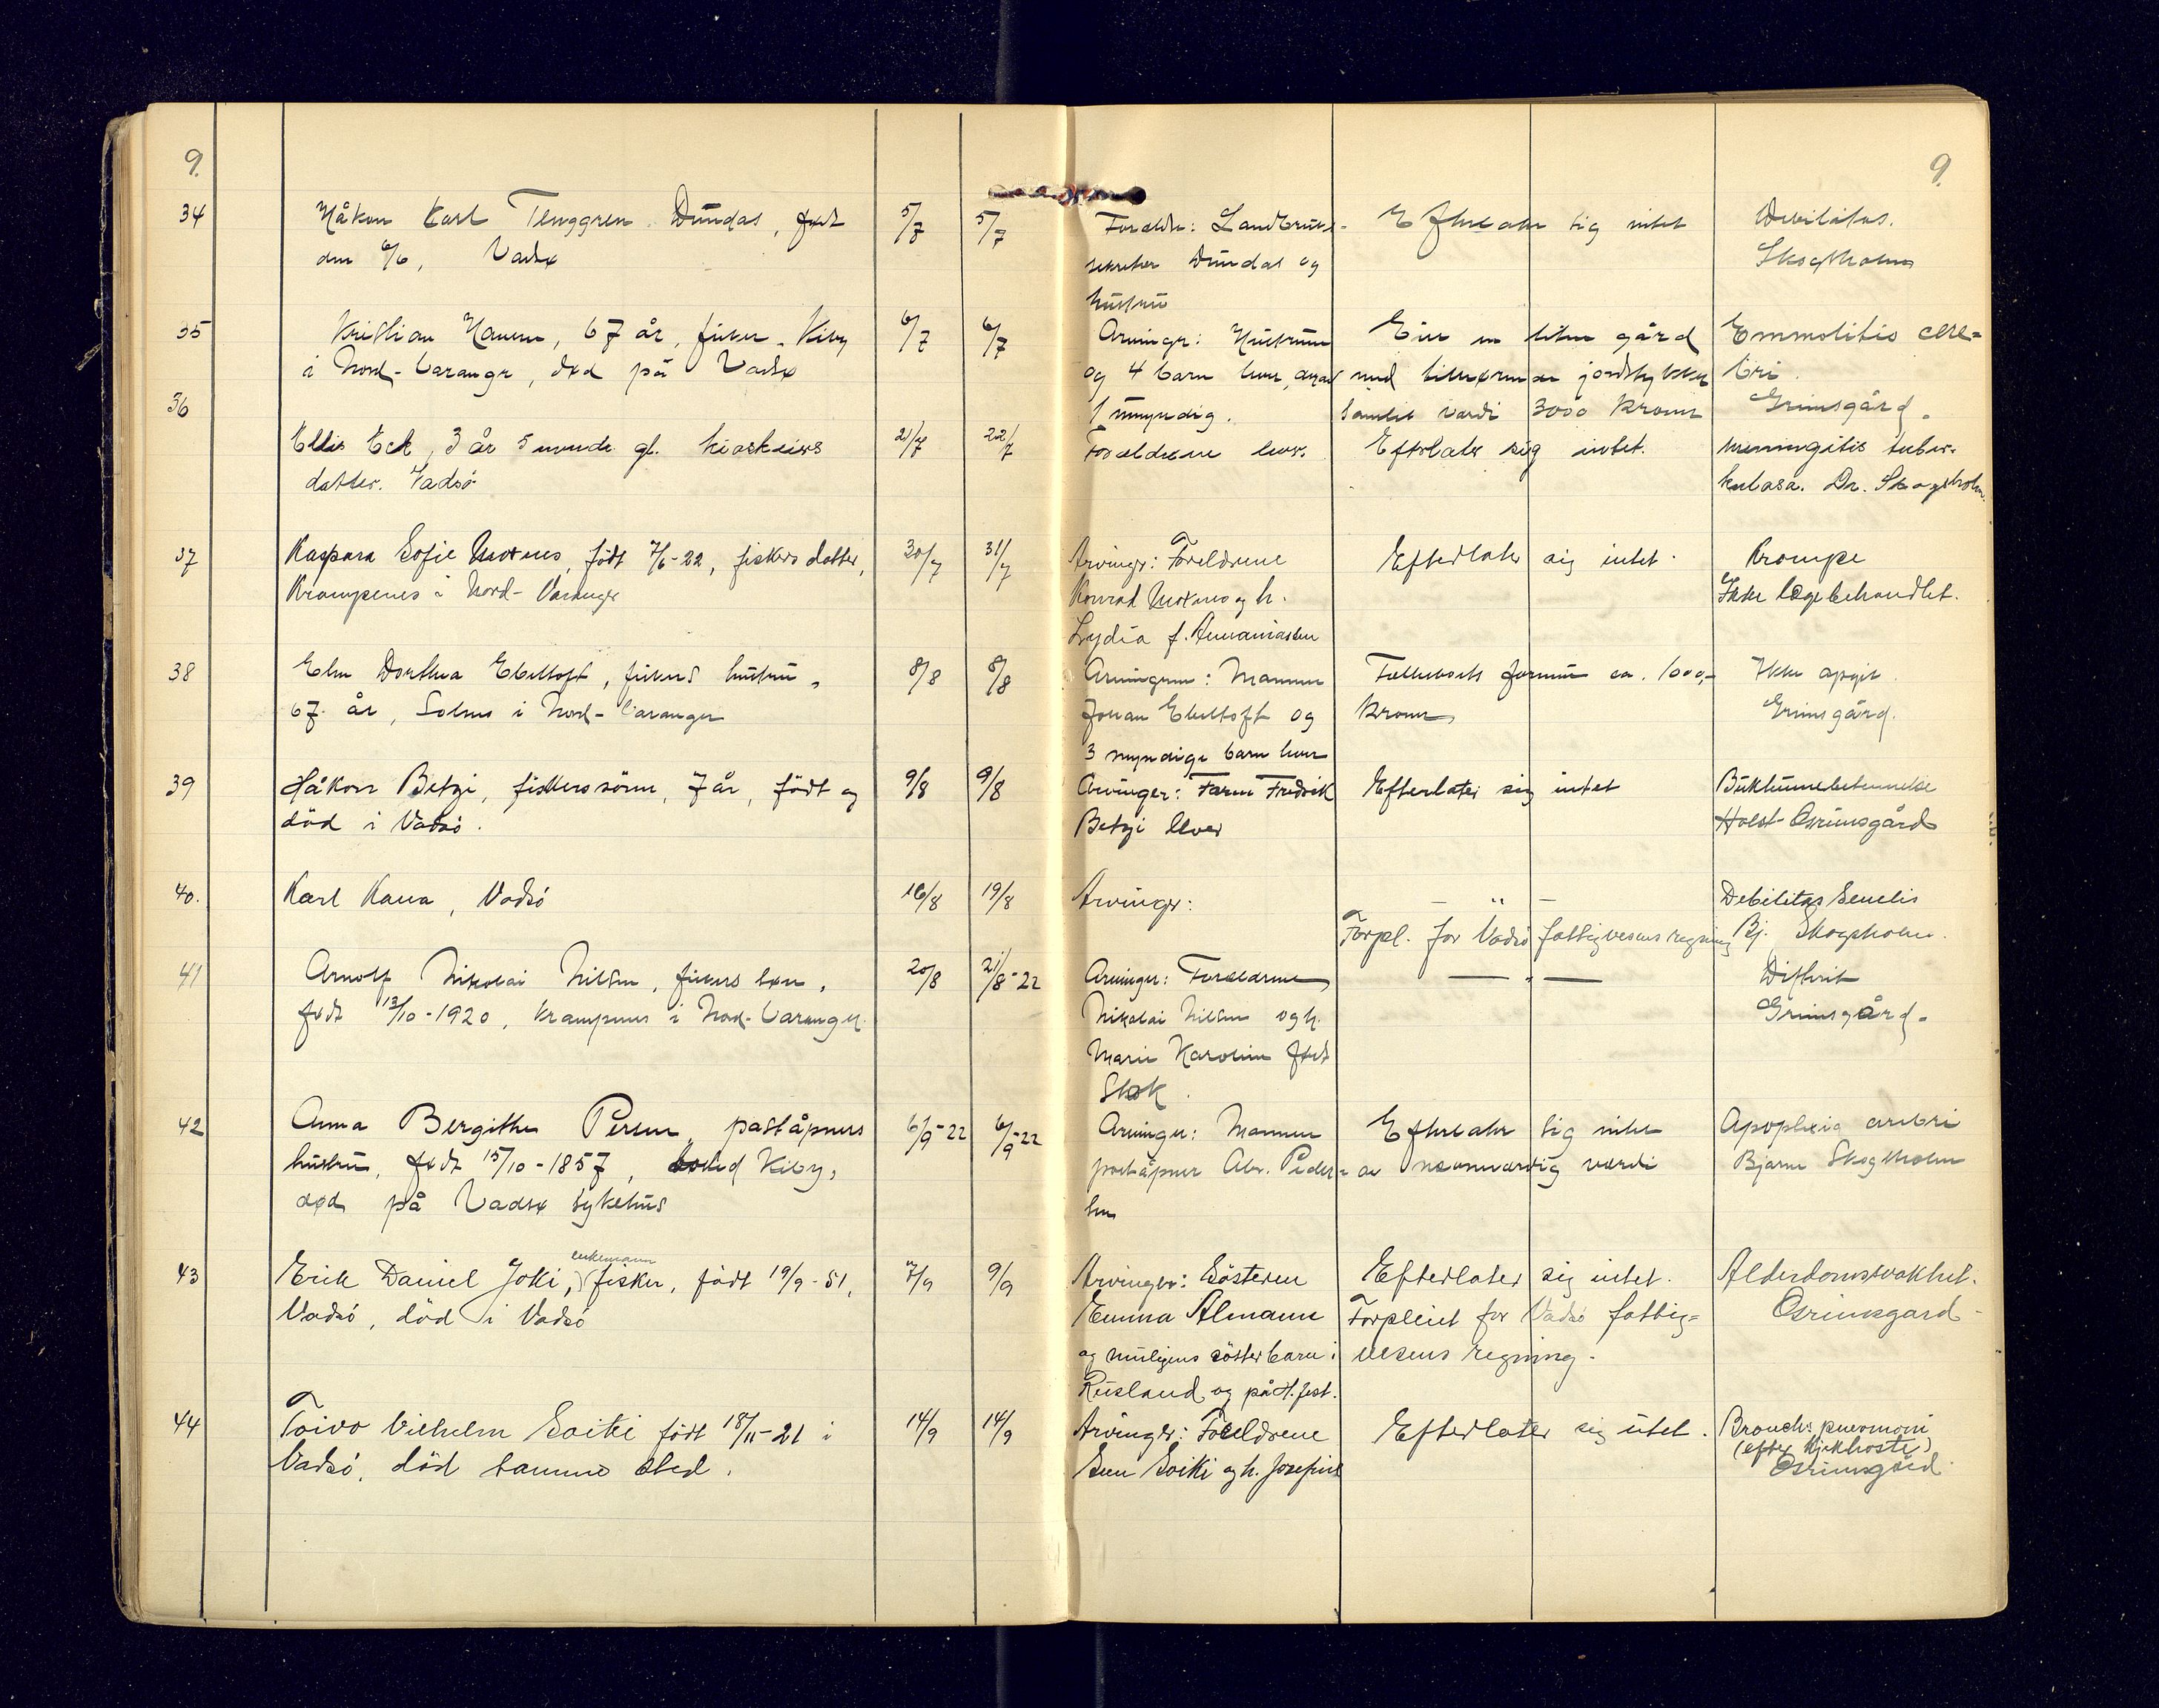 9.
9.
34 Håkon Karl Tenggren Dundas, født 5/7 5/7 Foreldre: Landbruks- Efterlater sig intet Debilitas.
den 6/6, Vadsø sekretær Dundas og Skogsholm
hustru
35 Kristian Hansen, 67 år, fisker, Kiby 6/7 6/7 Arvinger: Hustruen Eier en liten gård Emmolitio cere=
i Nord-Varanger, død på Vadsø og 4 barn lever, derav med tilhørende jordstykker bri.
36 1 umyndig. Samlet værdi 3000 kroner Grimsgård.
Ellis Eck, 3 år 5 mnde gl. kioskeiers 21/7 22/7 Forældrene lever. Efterlater sig intet. meningitis tuber-
datter. Vadsö kulosa. Dr. Skogsholm.
37 Kaspara Sofie født 7/6-22, fiskers datter, 30/7 31/7 Arvinger: Foreldrene Efterlater sig intet. Krampe
Krampenes i Nord-Varanger Konrad og h. Ikke lægebehandlet.
Lydia f. Ananiassen
38 Elen Dorthea Ebeltoft, fiskers hustru, 8/8 8/8 Arvingene: Mannen Fellesboets formue ca. 1000,- Ikke opgit.
67 år, Solnes i Nord-Varanger Johan Ebeltoft og kroner Grimsgård.
3 myndige barn lever
39 Håkon Betzi, fiskers sönn, 7 år, födt og 9/8 9/8 Arvinger: Faren Fredrik Efterlater sig intet Bukhinnebetennelse
död i Vadsö. Betzi lever Holst-Grimsgård
40. Karl Kana, Vadsö 16/8 19/8 Arvinger: — " — Debilitas Senelis
Forpl. for Vadsö fattigvesens regning Bj. Skogsholm.
41 Arnolf Nikolai Nilsen, fiskers søn, 20/8 21/8-22 Arvinger: Forældrene — " — Difterit
født 13/10-1920, Krampenes i Nord-Varanger. Nikolai Nilsen og h. Grimsgård.
Marie Karoline født
Skok.
42 Anna Bergithe Persen, poståpners 6/9-22 6/9-22 Arvinger: Mannen Efterlater sig intet Apoplexia cerebri
hustru, født 15/10-1857, bosted Kiby, poståpner Abr. Peder= av nevneverdig verdi Bjarne Skogsholm
død på Vadsø sykehus sen
43 Erik Daniel Joki, enkemann fisker, födt 19/9-51, 7/9 9/9 Arvinger: Sösteren Efterlater sig intet. Alderdomssvakhet.
Vadsö, död i Vadsö Emma Almann Forpleiet for Vadsö fattig= Grimsgard
og muligens sösterbarn i vesens regning.
Rusland og på H.fest.
44 Toivo Vilhelm Soiki födt 18/11-21 i 14/9 14/9 Arvinger: Foreldrene Efterlater sig intet. Bronch: pneumoni
Vadsö, död samme sted. Soiki og h. Josefine (efter kikhoste)
Grimsgård.